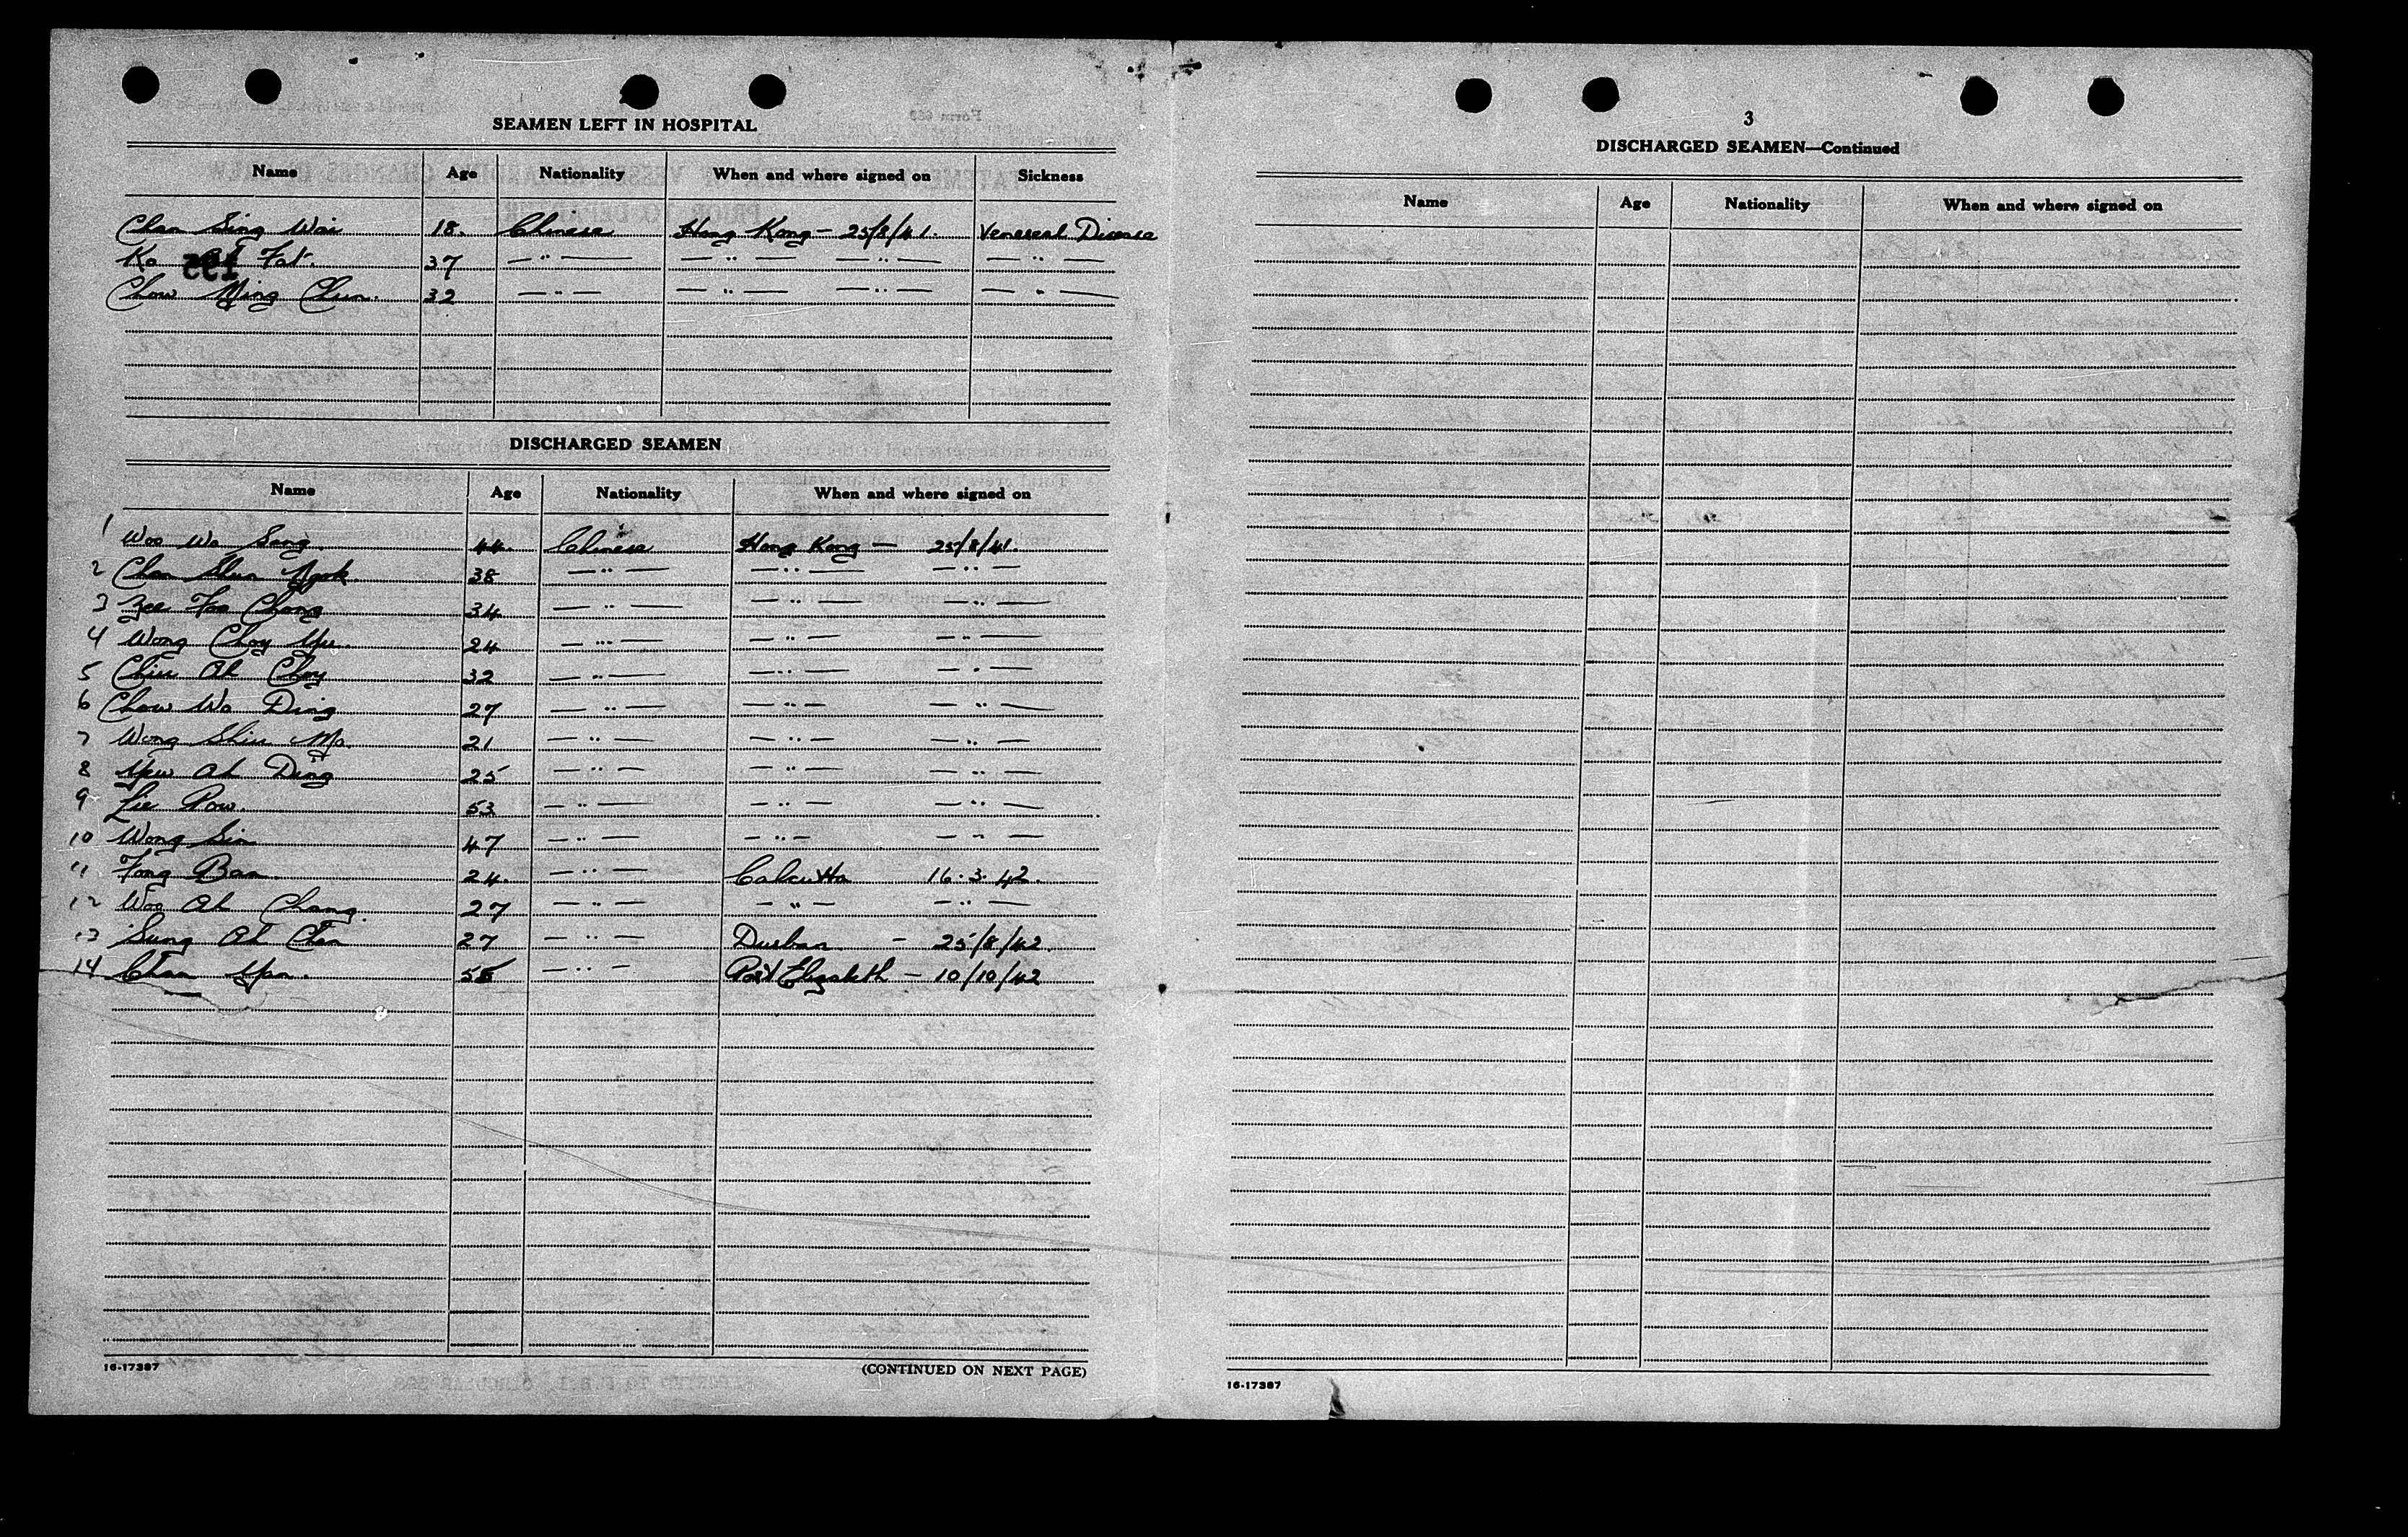 SEAMEN LEFT IN HOSPITAL
Name Age Nationality When and where signed on Sickness
Chan Sing Wai 18. Chinese Hong Kong - 25/8/41. Venereal Disease
Ko Fat. 37 — " — — " — — " — — " —
Chow Ying Chun. 32 — " — — " — — " — — " —
DISCHARGED SEAMEN
Name Age Nationality When and where signed on
1 Woo Wo Sang. 44. Chinese Hong Kong — 25/8/41.
2 Chan Shun Ngok. 38 — " — — " — — " —
3 Zee Foo Chong 34 — " — — " — — " —
4 Wong Choy Yu. 24 — " — — " — — " —
5 Chiu Ah Choy 32 — " — — " — — " —
6 Chow Wo Ding 27 — " — — " — — " —
7 Wong Shiu Mo. 21 — " — — " — — " —
8 Yew Ah Ding 25 — " — — " — — " —
9 Lie Pow. 53 — " — — " — — " —
10 Wong Sin 47 — " — — " — — " —
11 Fong Ban. 24. — " — Calcutta 16.3.42.
12 Woo Ah Chang. 27 — " — — " — — " —
13 Sung Ah Chan 27 — " — Durban - 25/8/42.
14 Chan Yan. — " — Port Elizabeth — 10/10/42
16-17387 (CONTINUED ON NEXT PAGE)
3
DISCHARGED SEAMEN—Continued
Name Age Nationality When and where signed on
16-17387